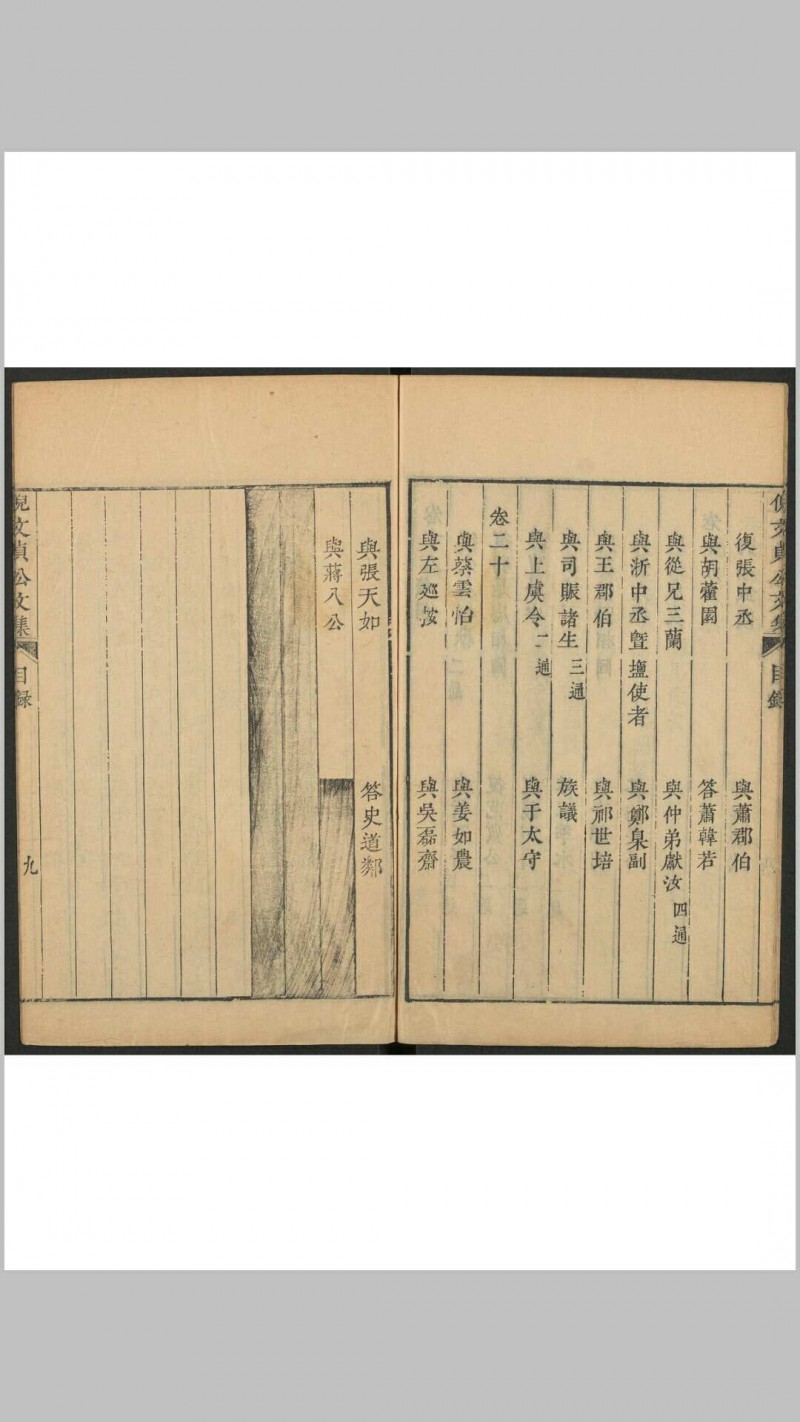 倪文貞公文集 目錄
復張中丞 與蕭郡伯
與胡藿園 答蕭韓若
與從兄三蘭 與仲弟獻汝 四通
與浙中丞曁鹽使者 與鄭臬副
與王郡伯 與祁世培
與司賑諸生 三通 族議
與上虞令 二通 與于太守
卷二十
與蔡雲怡 與姜如農
與左廵按 與吳磊齋
與張天如 答史道鄰
與蔣八公
倪文貞公文集 目録 九